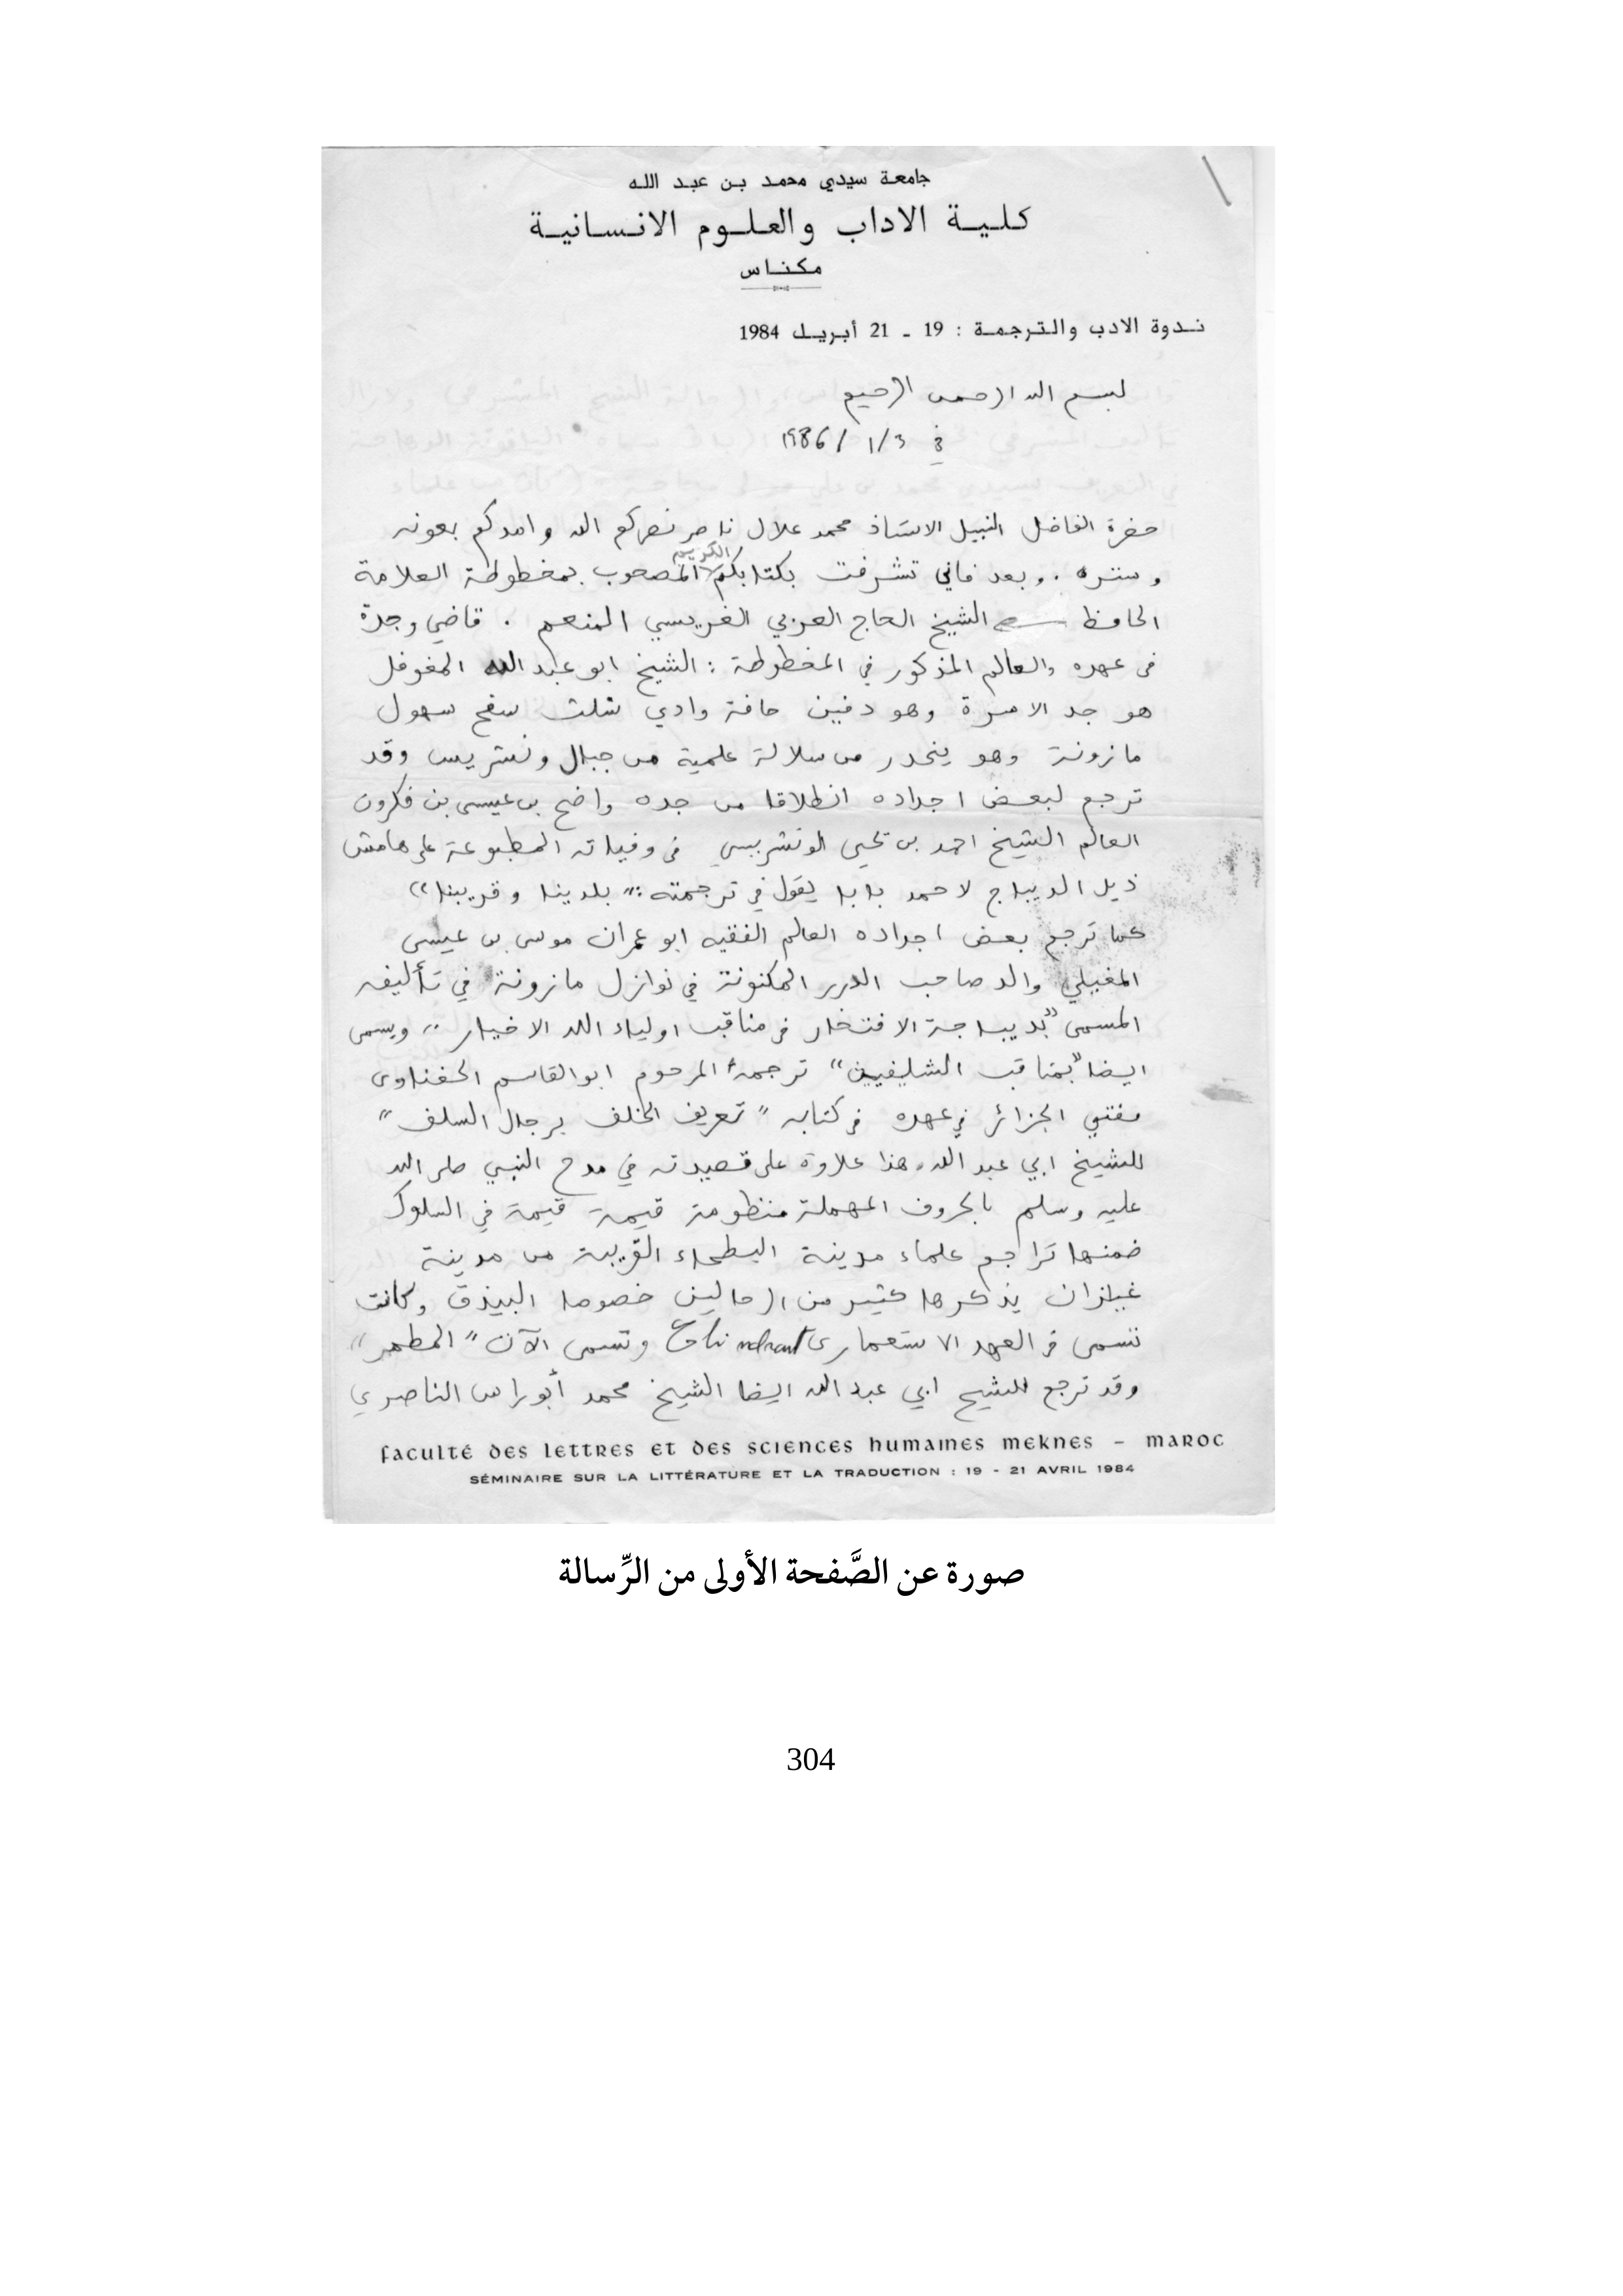 جامعة سيدي محمد بن عبد الله
كلية الاداب والعلوم الانسانية
مكناس
ندوة الادب والترجمة : 19 ـ 21 أبريل 1984
بسم الله الرحمن الرحيم
في 3/1/1986
حضرة الفاضل النبيل الاستاذ محمد علال ناصر نصركم الله وامدكم بعونه
وستره . وبعد فاني تشرفت بكتابكم الكريم المصحوب بمخطوطة العلامة
الحافظ الشيخ الحاج العربي الغريسي المنعم . قاضي وجدة
في عهده والعالم المذكور في المخطوطة : الشيخ ابو عبد الله المغوفل
هو جد الاسرة وهو دفين حافة وادي شلف سفح سهول
مازونة وهو ينحدر من سلالة علمية من جبال ونشريس وقد
ترجم لبعض اجداده انطلاقا من جده واضح بن عيسى بن فكرون
العالم الشيخ احمد بن يحيى الونشريسي في وفياته المطبوعة على هامش
ذيل الديباج لاحمد بابا يقول في ترجمته : "بلدينا وقريبنا"
كما ترجم بعض اجداده العالم الفقيه ابو عمران موسى بن عيسى
المغيلي والد صاحب الدرر المكنونة في نوازل مازونة في تأليفه
المسمى "بديباجة الافتخار في مناقب اولياء الله الاخيار" ويسمى
ايضا "بمناقب الشليفيين" ترجمة المرحوم ابو القاسم الحفناوي
مفتي الجزائر في عهده في كتابه "تعريف الخلف برجال السلف"
للشيخ ابي عبد الله . هذا علاوة على قصيدته في مدح النبي صلى الله
عليه وسلم بالحروف المهملة منظومة قيمة قيمة في السلوك
ضمنها تراجم علماء مدينة البطحاء القريبة من مدينة
غيلزان يذكرها كثير من الرحالين خصوصا البيذق وكانت
تسمى في العهد الاستعماري وتسمى الآن "المطمر"
وقد ترجم للشيخ ابي عبد الله ايضا الشيخ محمد أبو راس الناصري
faculté des lettres et des sciences humaines meknes – maroc
SÉMINAIRE SUR LA LITTÉRATURE ET LA TRADUCTION : 19 - 21 AVRIL 1984
صورة عن الصَّفحة الأولى من الرِّسالة
304